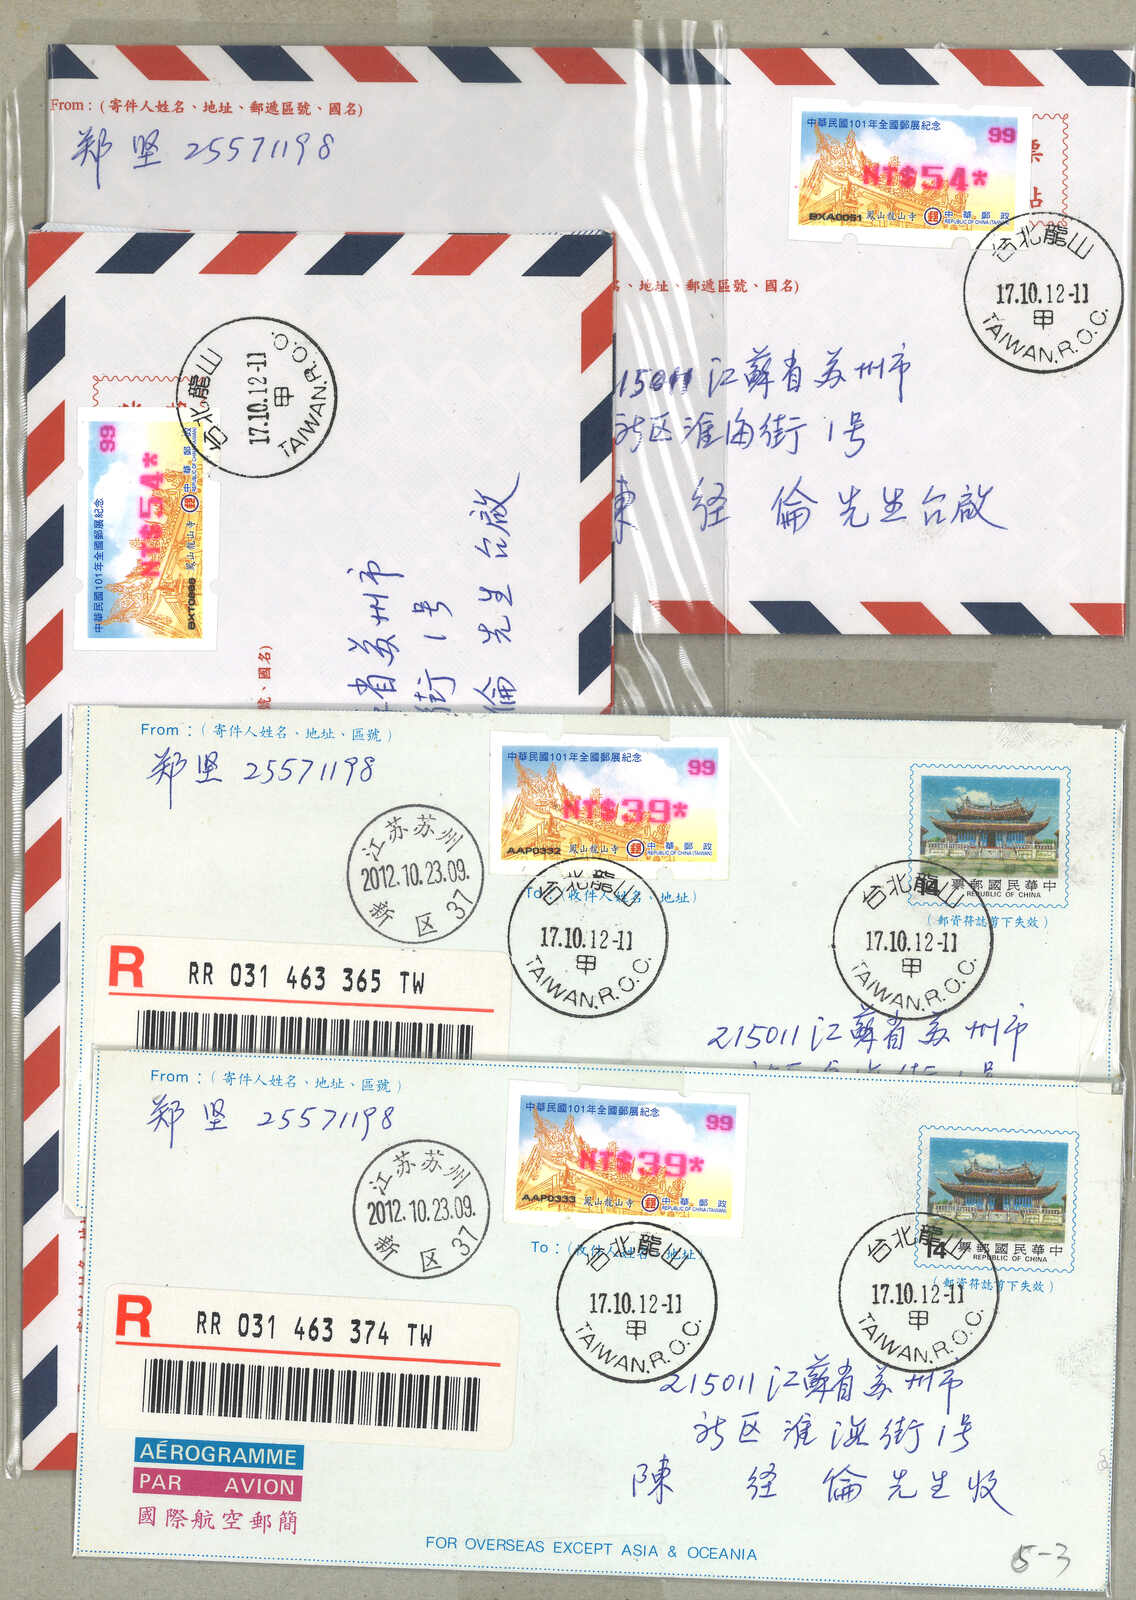 From：(寄件人姓名、地址、郵遞區號、國名)
郑 坚 25571198
中華民國101年全國郵展紀念
99
NT$54*
BXA0051 鳳山龍山寺 中華郵政
REPUBLIC OF CHINA (TAIWAN)
票
台北龍山
17.10.12-11
甲
TAIWAN.R.O.C.
、地址、郵遞區號、國名)
215011江蘇省苏州市
新区淮海街1号
陳 经 倫先生台啟
台北龍山
17.10.12-11
甲
TAIWAN.R.O.C.
中華民國101年全國郵展紀念
99
NT$54*
鳳山龍山寺 中華郵政
REPUBLIC OF CHINA (TAIWAN)
、國名)
省苏州市
街1号
倫 先生台啟
From：(寄件人姓名、地址、區號)
郑 坚 25571198
中華民國101年全國郵展紀念
99
NT$39*
AAP0332 鳳山龍山寺 中華郵政
REPUBLIC OF CHINA (TAIWAN)
江苏苏州
2012.10.23.09.
新 区 37
To：(收件人姓名、地址)
台北龍山
17.10.12-11
甲
TAIWAN.R.O.C.
14
票郵國民華中
REPUBLIC OF CHINA
(郵資符誌剪下失效)
台北龍山
17.10.12-11
甲
TAIWAN.R.O.C.
R RR 031 463 365 TW
215011江蘇省苏州市
From：(寄件人姓名、地址、區號)
郑 坚 25571198
中華民國101年全國郵展紀念
99
NT$39*
AAP0333 鳳山龍山寺 中華郵政
REPUBLIC OF CHINA (TAIWAN)
江苏苏州
2012.10.23.09.
新 区 37
To：(收件人姓名、地址)
台北龍山
17.10.12-11
甲
TAIWAN.R.O.C.
14
票郵國民華中
REPUBLIC OF CHINA
(郵資符誌剪下失效)
台北龍山
17.10.12-11
甲
TAIWAN.R.O.C.
R RR 031 463 374 TW
215011江蘇省苏州市
新区淮海街1号
陳 经 倫先生收
AÉROGRAMME
PAR AVION
國際航空郵簡
FOR OVERSEAS EXCEPT ASIA & OCEANIA
5-3